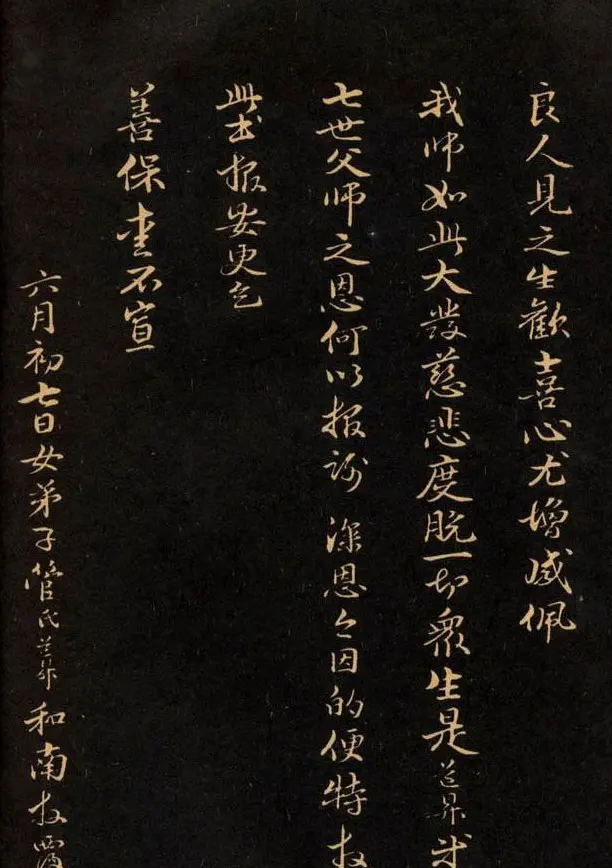 良人見之生歡喜心尤增感佩
我師如此大發慈悲度脫一切眾生是道昇
七世父師之恩何以報謝 深恩今因的便特
此書報安更乞
善保重不宣
六月初七日女弟子管氏道昇和南拜覆